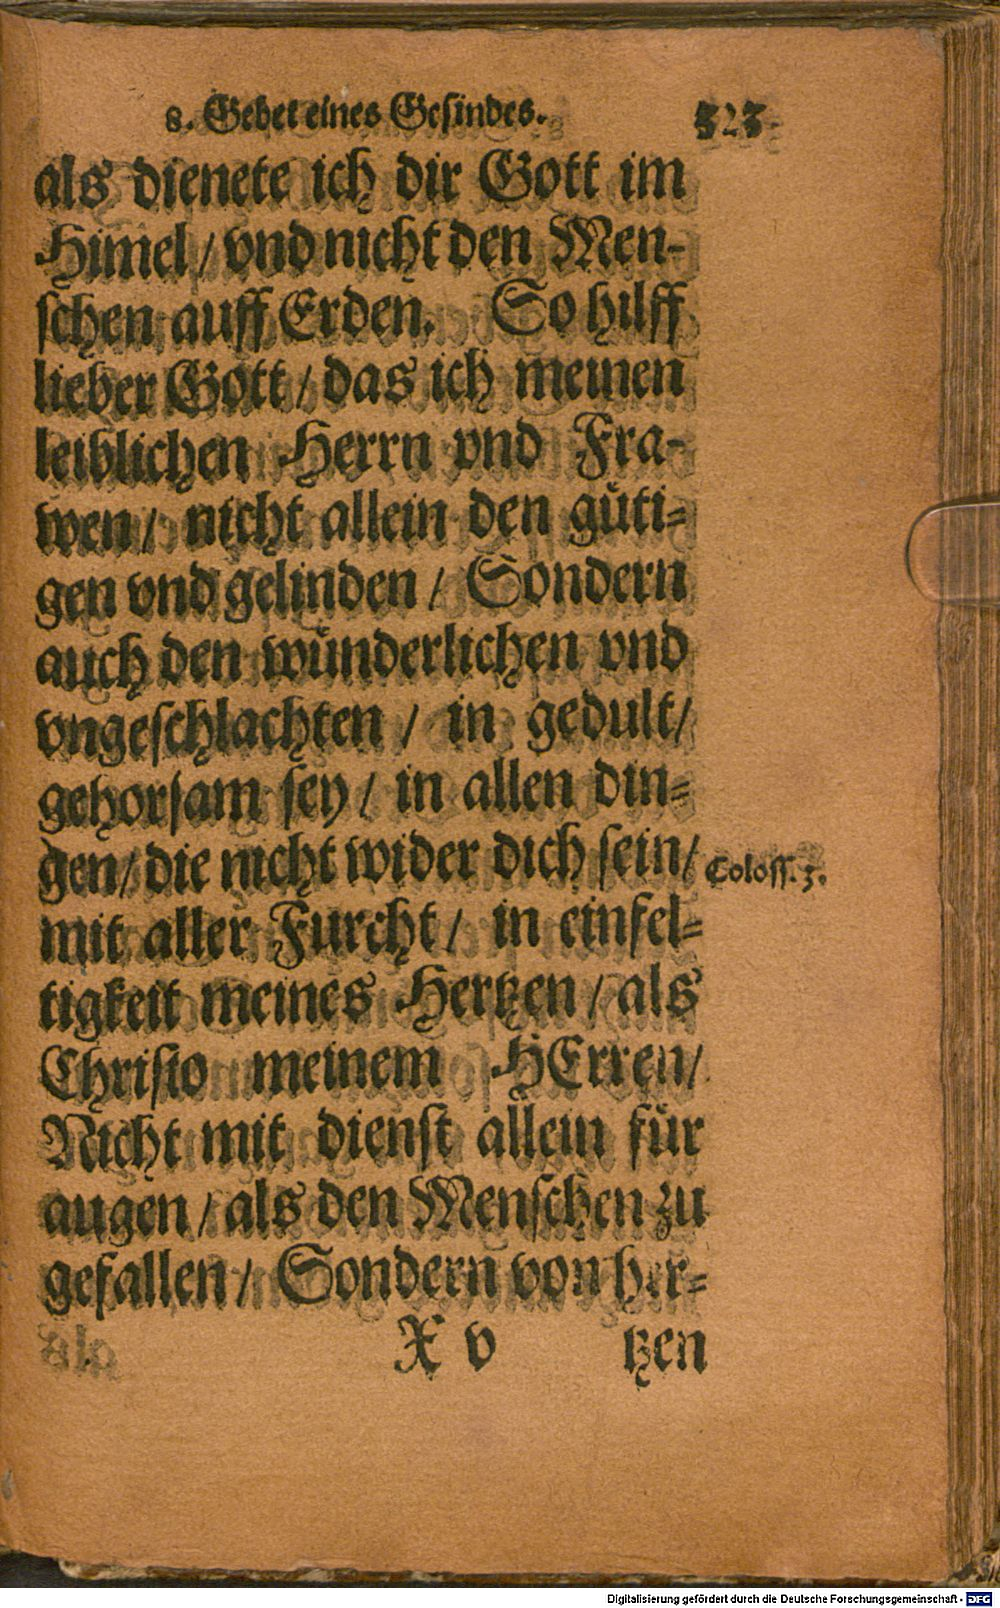 8. Gebet eines Gesindes. 323
als dienete ich dir Gott im
Himel / vnd nicht den Men-
schen auff Erden. So hilff
lieber Gott / das ich meinen
leiblichen Herrn vnd Fra-
wen / nicht allein den gůti-
gen vnd gelinden / Sondern
auch den wůnderlichen vnd
vngeschlachten / in gedult /
gehorsam sey / in allen din-
gen / die nicht wider dich sein /
Coloss. 3.
mit aller Furcht / in einfel-
tigkeit meines Hertzen / als
Christo meinem HErren /
Nicht mit dienst allein für
augen / als den Menschen zu
gefallen / Sondern von her-
X v tzen
Digitalisierung gefördert durch die Deutsche Forschungsgemeinschaft - DFG